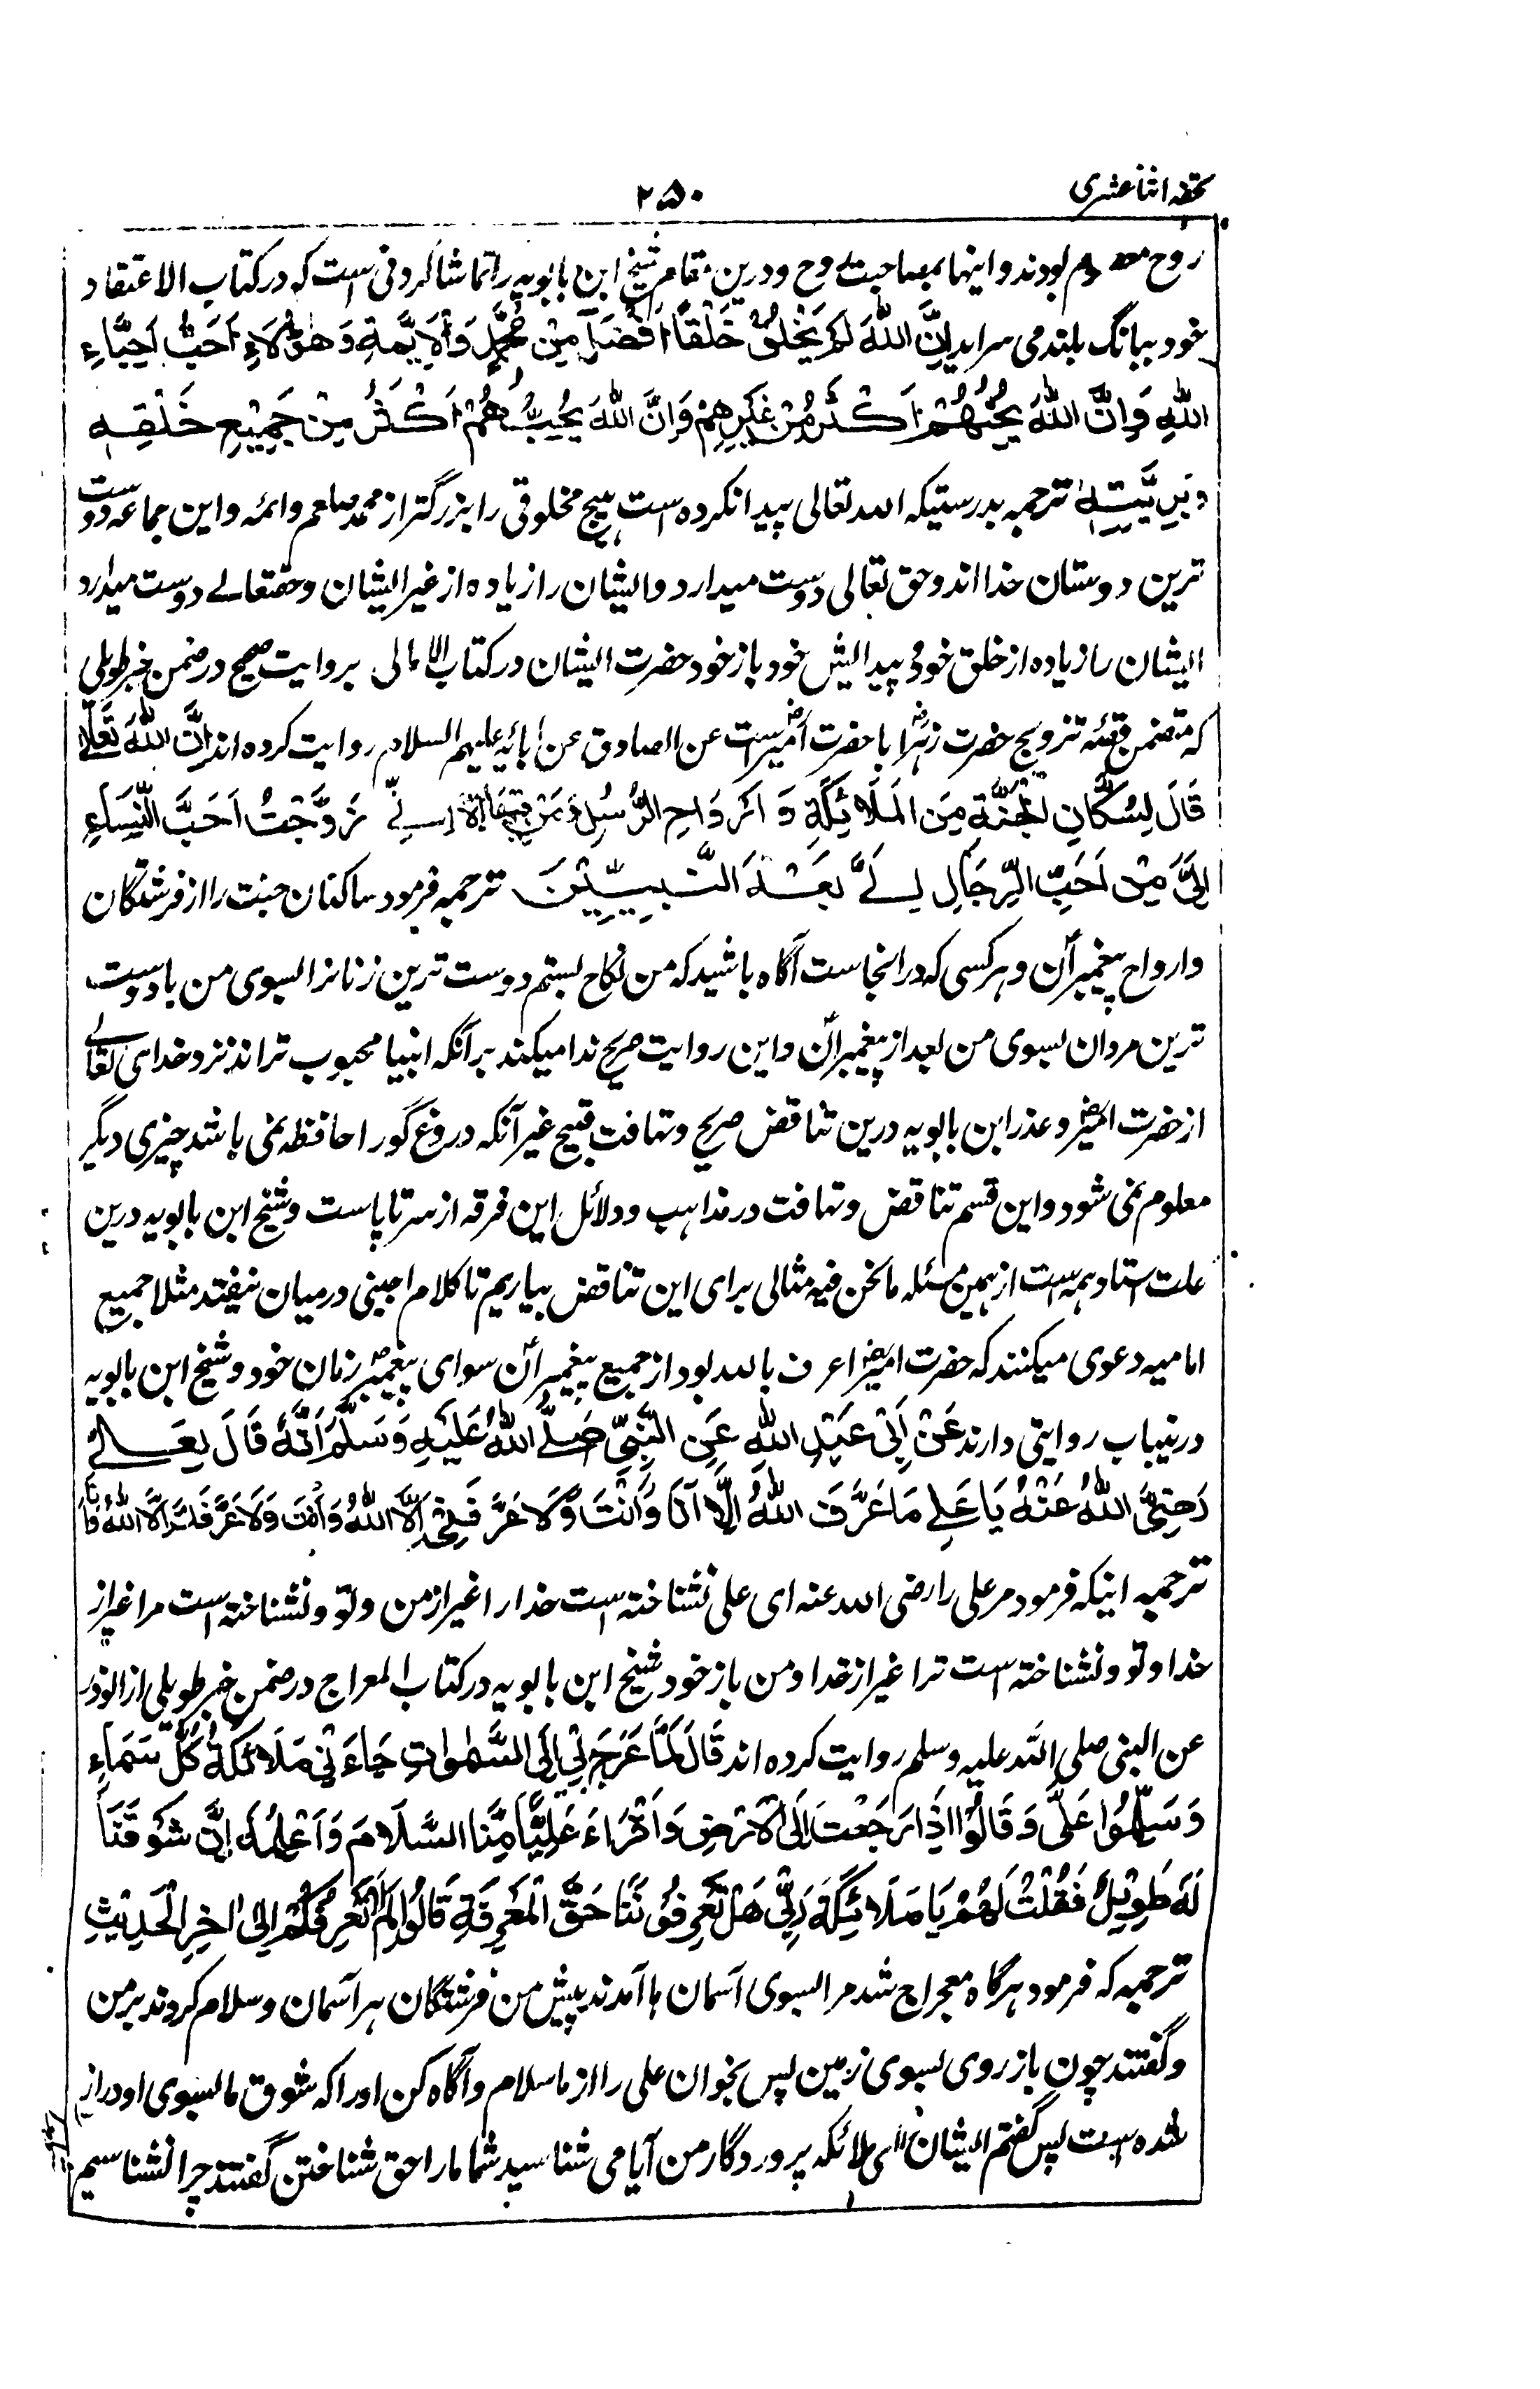 تحفہ اثنا عشری
۲۵۰
روح معدوم بودند و اینها بمصاحبت روح و درین مقام شیخ ابن بابویہ را تماشا کردنی است کہ در کتاب الاعتقاد
خود ببانگ بلند می سراید اِنَّ اللّٰہَ لَمْ یَخْلُقْ خَلْقًا اَفْضَلَ مِنْ مُحَمَّدٍ وَالْاَئِمَّةِ وَھٰؤُلَاءِ اَحَبُّ اَحِبَّاءِ
اللّٰہِ وَاِنَّ اللّٰہَ یُحِبُّھُمْ اَکْثَرَ مِنْ غَیْرِھِمْ وَاِنَّ اللّٰہَ یُحِبُّھُمْ اَکْثَرَ مِنْ جَمِیْعِ خَلْقِہٖ
وَبَرِیَّتِہٖ ترجمہ بدرستیکہ اللہ تعالی پیدا نکردہ است ہیچ مخلوقی را بزرگتر از محمد صلعم وائمہ و این جماعہ دوست
ترین دوستان خدا اند و حق تعالی دوست میدارد و ایشان را زیادہ از غیر ایشان و حقتعالے دوست میدارد
ایشان را زیادہ از خلق خود و پیدایش خود باز خود حضرت ایشان در کتاب الامالی بروایت صحیح در ضمن خبر طویلی
کہ متضمن قصّہ تزویج حضرت زہرا با حضرت امیر است عن الصادق عن اٰبائہ علیہم السلام روایت کردہ اند اِنَّ اللّٰہَ تَعَالٰی
قَالَ لِسُکَّانِ الْجَنَّةِ مِنَ الْمَلَائِکَةِ وَ اَرْوَاحِ الرُّسُلِ وَمَنْ فِیْھَا اَلَا اِنِّیْ زَوَّجْتُ اَحَبَّ النِّسَاءِ
اِلَیَّ مِنْ اَحَبِّ الرِّجَالِ اِلَیَّ بَعْدَ النَّبِیِّیْنَ ترجمہ فرمود ساکنان جنت را از فرشتگان
وارواح پیغمبران و ہر کسی کہ در انجاست آگاہ باشید کہ من نکاح بستم دوست ترین زنانرا بسوی من با دوست
ترین مردان بسوی من بعد از پیغمبران و این روایت صریح ندا میکند برآنکہ انبیا محبوب تر اند نزد خدای تعالے
از حضرت امیر و عذر ابن بابویہ درین تناقض صریح و تہافت قبیح غیر آنکہ دروغ گو را حافظہ نمی باشد چیزی دیگر
معلوم نمی شود و این قسم تناقض و تہافت در مذاہب و دلائل این فرقہ از سر تا پاست و شیخ ابن بابویہ درین
علت استاد ہمہ است از ہمین مسئلہ ما نحن فیہ مثالی برای این تناقض بیاریم تا کلام اجنبی درمیان نیفتد مثلا جمیع
امامیہ دعوی میکنند کہ حضرت امیر اعرف باللہ بود از جمیع پیغمبران سوای پیغمبر زمان خود و شیخ ابن بابویہ
درینباب روایتی دارند عَنْ اَبِیْ عَبْدِ اللّٰہِ عَنِ النَّبِیِّ صَلَّی اللّٰہُ عَلَیْہِ وَسَلَّمَ اَنَّہٗ قَالَ لِعَلِیٍّ
رَضِیَ اللّٰہُ عَنْہُ یَا عَلِی مَا عَرَفَ اللّٰہَ اِلَّا اَنَا وَاَنْتَ وَلَا عَرَفَنِیْ اِلَّا اللّٰہُ وَاَنْتَ وَلَا عَرَفَکَ اِلَّا اللّٰہُ وَاَنَا
ترجمہ اینکہ فرمود مر علی را رضی اللہ عنہ ای علی نشناختہ است خدا را غیر از من و تو و نشناختہ است مرا غیر از
خدا و تو و نشناختہ است ترا غیر از خدا و من باز خود شیخ ابن بابویہ در کتاب المعراج در ضمن خبر طویلی از ابوذر
عن النبی صلی اللہ علیہ وسلم روایت کردہ اند قَالَ لَمَّا عُرِجَ بِیْ اِلَی السَّمٰوَاتِ جَاءَنِیْ مَلَائِکَةُ کُلِّ سَمَاءٍ
وَسَلَّمُوْا عَلَیَّ وَقَالُوْا اِذَا رَجَعْتَ اِلَی الْاَرْضِ وَاَقْرَاَءَ عَلِیًّا مِنَّا السَّلَامَ وَاَعْلِمْہُ اِنَّ شَوْقَنَا
لَہٗ طَوِیْلٌ فَقُلْتُ لَھُمْ یَا مَلَائِکَةَ رَبِّیْ ھَلْ تَعْرِفُوْنَنَا حَقَّ الْمَعْرِفَةِ قَالُوْا لِمَ لَا نَعْرِفُکُمْ اِلٰی اٰخِرِ الْحَدِیْثِ
ترجمہ کہ فرمود ہرگاہ معراج شد مرا بسوی آسمان ہا آمدند پیش من فرشتگان ہر آسمان و سلام کردند بر من
و گفتند چون باز روی بسوی زمین پس بخوان علی را از ما سلام و آگاہ کن او را کہ شوق ما بسوی او دراز
شدہ است پس گفتم ایشان را ای ملائکہ پروردگار من آیا می شناسید شما ما را حق شناختن گفتند چرا نشناسیم